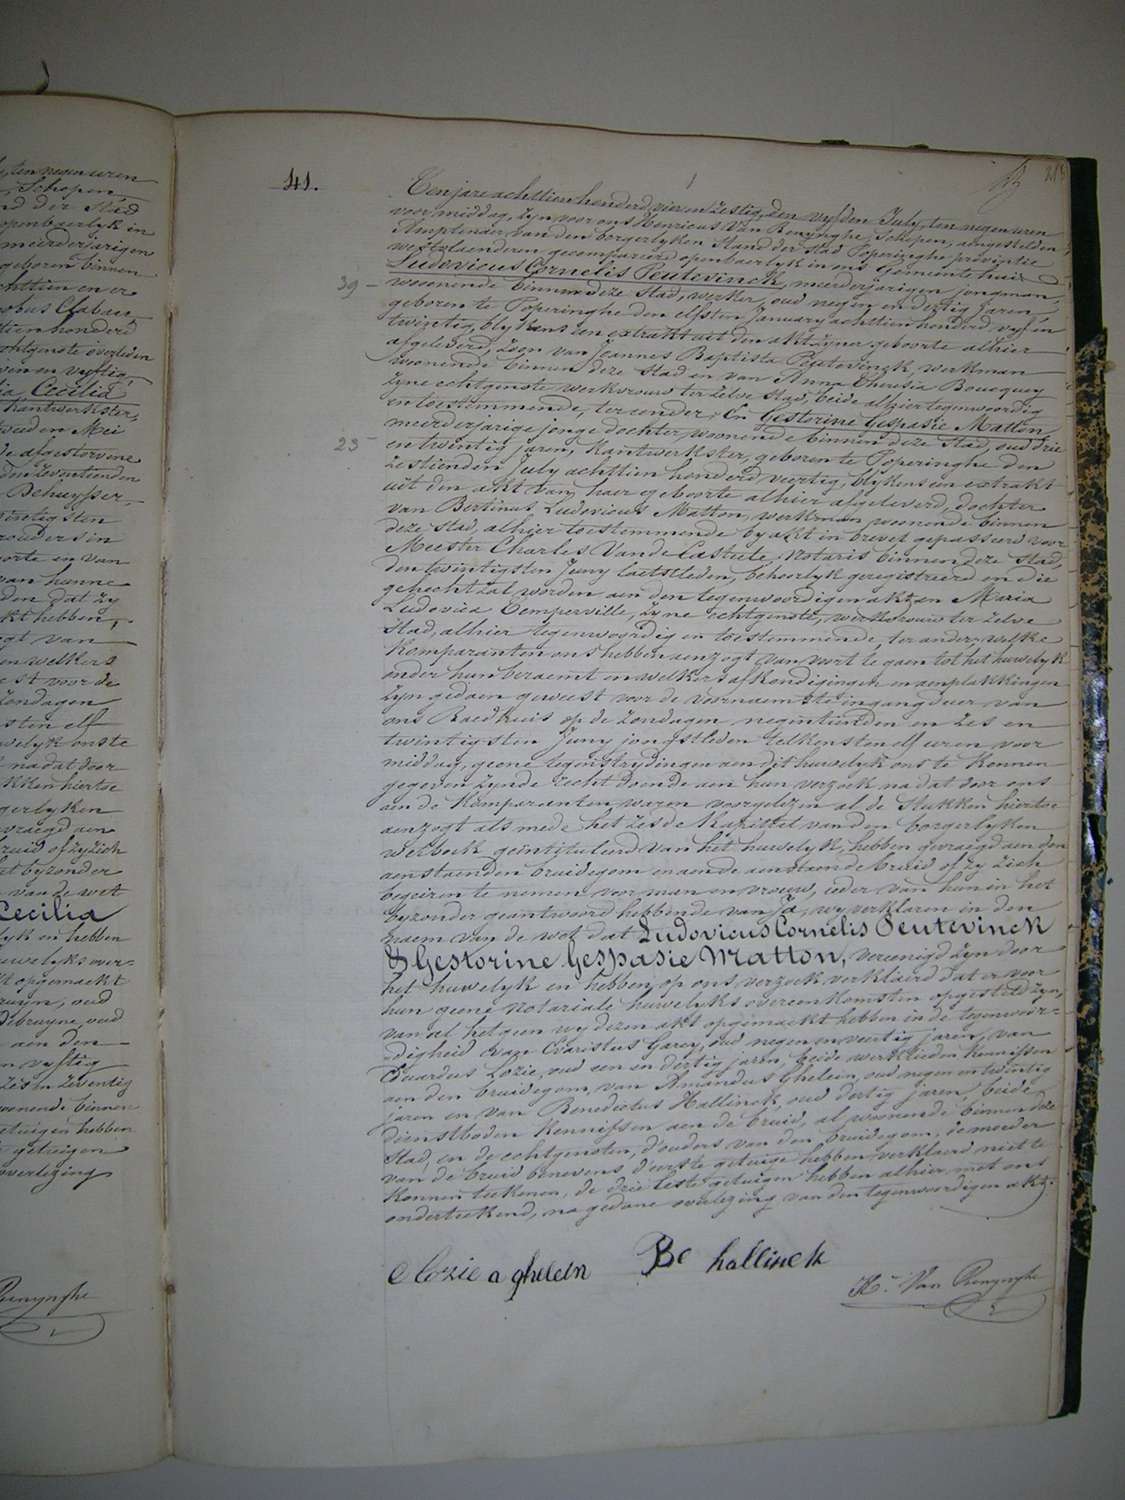 ten negen uren
Schepen
der Stad
openbaerlyk in
meerderjarigen
geboren binnen
achttien en er
Jacobus Clabaer
tien honderd
echtgenote overleden
en vyftig
Cecilia
Kantwerkster,
den Mei
de afgestorvene
den twaelfden
Dehuysser
twintigsten
ouders in
en van
van hunne
den dat zy
kt hebben,
van
en welkers
st voor de
Zondagen
sten elf
huwelyk ons te
na dat door
stukken hiertoe
borgerlyken
gevraegd aen
bruid of zy zich
het byzonder
van de wet
Cecilia
huwelyk en hebben
huwelyks over-
akt opgemaekt
oud
Debruyne, oud
aen den
en vyftig
zes en zeventig
woonende binnen
getuigen hebben
getuigen
overlezing
Renynghe
41.
213
Ten jare achttien honderd vier en zestig, den vyfden July, ten negen uren
voor middag, zyn voor ons Henricus Van Renynghe, Schepen, aengestelden
Amptenaer van den borgerlyken Stand der Stad Poperinghe provintie
westvlaenderen gecompareerd openbaerlyk in ons Gemeente huis
Ludovicus Cornelis Peutevinck, meerderjarigen jongman,
39
woonende binnen deze Stad, werker, oud negen en dertig jaren
geboren te Poperinghe den elfsten January achttien honderd vyf en
twintig, blykens een extrakt uit den akt zyner geboorte alhier
afgeleverd, zoon van Joannes Baptista Peutevinck, werkman
woonende binnen deze Stad en van Anna Theresia Boucquey
zyne echtgenote werkvrouw ter zelve stad, beide alhier tegenwoordig
en toestemmende, ter eender; En Gestorine Gespasie Matton,
meerderjarige jonge dochter, woonende binnen deze Stad, oud drie
23
en twintig jaren, Kantwerkster, geboren te Poperinghe den
zestienden July achttien honderd veertig, blykens een extrakt
uit den akt van haer geboorte alhier afgeleverd, dochter
van Bertinus Ludovicus Matton, werkman, woonende binnen
deze stad, alhier toestemmende by akt in brevet gepasseerd voor
Meester Charles Van de Casteele Notaris binnen deze Stad,
den twintigsten Juny laetstleden, behoorlyk geregistreerd en die
gehecht zal worden aen den tegenwoordigen akt en Maria
Ludovica Temperville, zyne echtgenote, werkvrouw ter zelve
Stad, alhier tegenwoordig en toestemmende, ter ander, welke
Komparanten ons hebben aenzogt van voort te gaen tot het huwelyk
onder hun beraemt en welkers afkondigingen en aenplakkingen
zyn gedaen geweest voor de voornaemste ingangdeur van
ons Raedhuis op de Zondagen negentienden en zes en
twintigsten Juny jongstleden telkens ten elf uren voor
middag, geene tegenstrydingen aen dit huwelyk ons te kennen
gegeven zynde recht doende aen hun verzoek na dat door ons
aen de Komparanten waren voorgelezen al de Stukken hiertoe
aenzogt als mede het zesde Kapittel van den borgerlyken
wetboek geintituleerd van het huwelyk, hebben gevraegd aen den
aenstaenden bruidegom en aen de aenstaende bruid of zy zich
begeiren te nemen voor man en vrouw, ieder van hun in het
byzonder geantwoord hebbende van Ja, wy verklaren in den
naem van de wet dat Ludovicus Cornelis Peutevinck
& Gestorine Gespasie Matton, vereenigd zyn door
het huwelyk en hebben op ons verzoek verklaerd dat er voor
hun geene Notariale huwelyks overeenkomsten opgesteld zyn,
van al hetgeen wy dezen akt opgemaekt hebben in de tegenwoor-
digheid van Evaristus Garey, oud negen en veertig jaren, van
Eduardus Lozie, oud een en dertig jaren beide werklieden Kennissen
aen den bruidegom, van Amandus Ghelein, oud negen en twintig
jaren en van Benedictus Hallinck, oud dertig jaren, beide
dienstboden Kennissen aen de bruid, al woonende binnen deze
Stad, en de echtgenoten, d'ouders van den bruidegom, de moeder
van de bruid benevens d'eerste getuige hebben verklaerd niet te
konnen teekenen, de drie leste getuigen hebben alhier met ons
onderteekend, na gedane overlezing van den tegenwoordigen akt.
e Lozie a ghelein Be hallinck
H. Van Renynghe